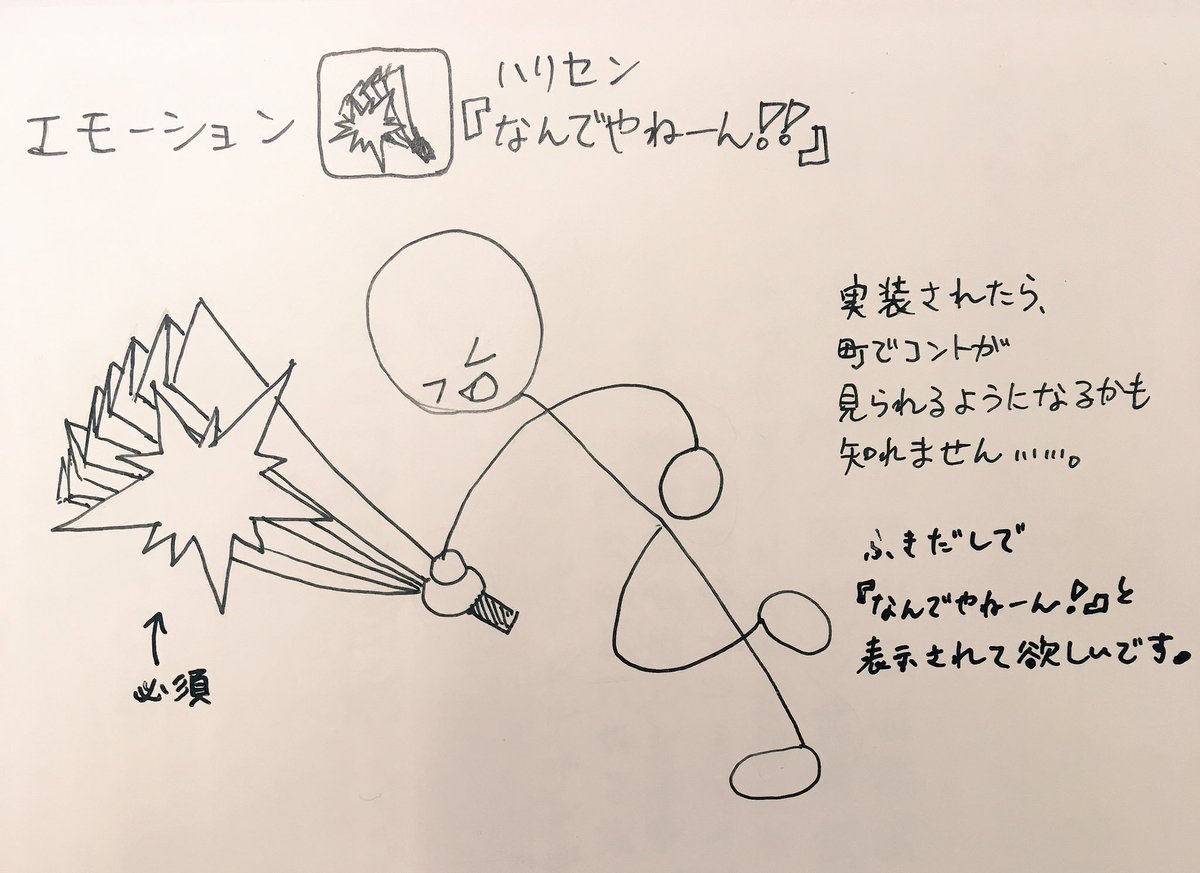 エモーション
ハリセン
『なんでやねーん!!』
実装されたら、
町でコントが
見られるようになるかも
知れません……。
ふきだしで
『なんでやねーん!』と
表示されて欲しいです。
必須